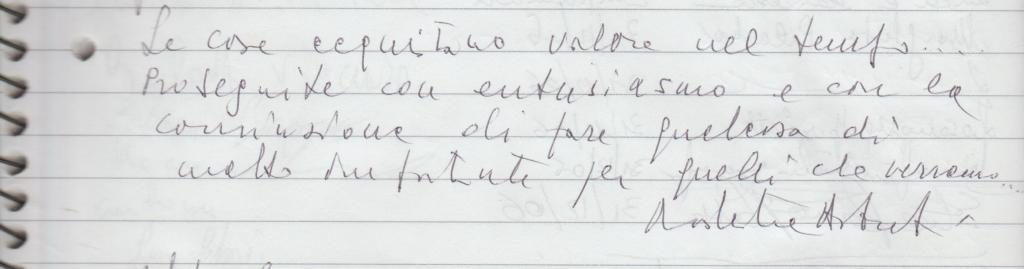 Le cose acquistano valore nel tempo....
Proseguite con entusiasmo e con la
convinzione di fare qualcosa di
molto importante per quelli che verranno...